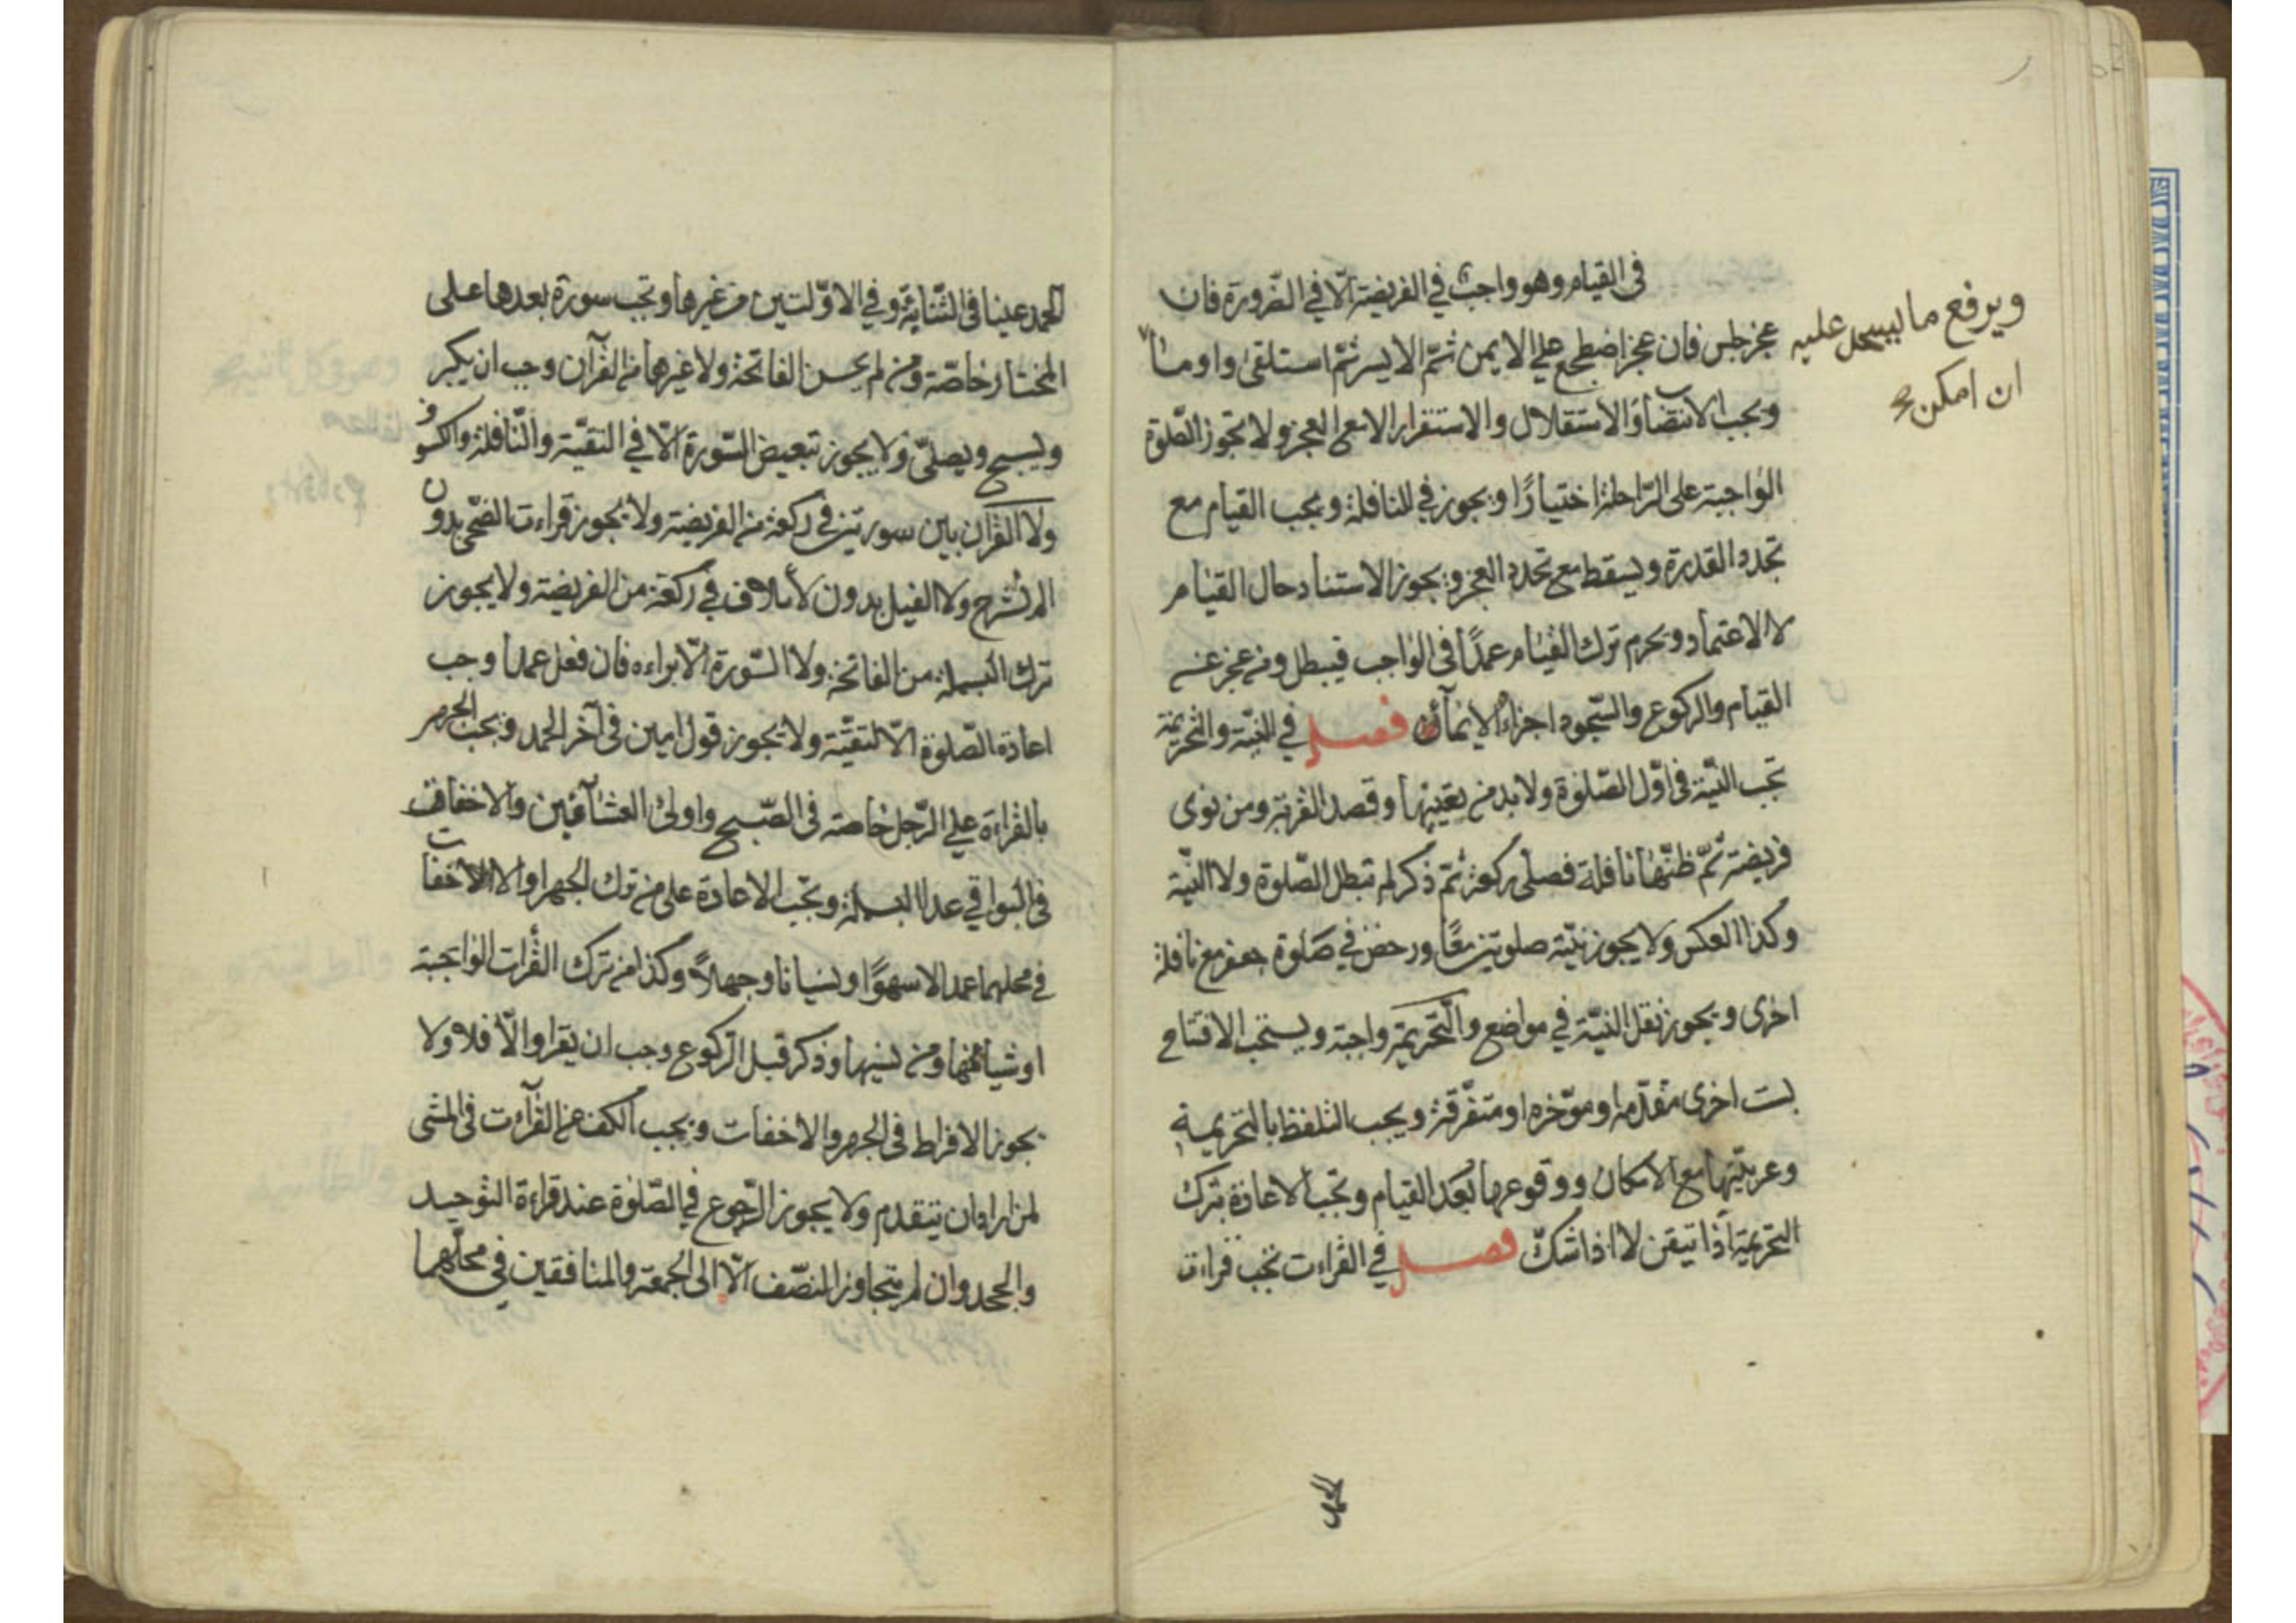 فى القيام وهو واجب في الفريضة الّا في الضّرورة فان
عجز جلس فان عجز اضطجع على الايمن ثمّ الايسر ثمّ استلقى واومأ
ويرفع ما يسجد عليه
ان امكن
ويجب الانتصاب والاستقلال والاستقرار الا مع العجز ولا تجوز الصّلوة
الواجبة على الرّاحلة اختيارًا ويجوز في النافلة ويجب القيام مع
تجدد القدرة ويسقط مع تجدد العجز ويجوز الاستناد حال القيام
لا الاعتماد ويحرم ترك القيام عمدًا فى الواجب فيبطل ومن عجز عنه
القيام والركوع والسّجود اجزاه الايمآء فصل في النيّة والتحريمة
تجب النيّة فى اوّل الصّلوة ولا بد من تعيينها وقصد القربة ومن نوى
فريضة ثمّ ظنّها نافلة فصلى ركعة ثمّ ذكر لم تبطل الصّلوة ولا النيّة
وكذا العكس ولا يجوز نيّة صلوتين معًا ورخص في صلوة جعفر مع نافلة
اخرى ويجوز نقل النيّة في مواضع والتّحريمة واجبة ويستحب الافتتاح
بست اخرى متقدّمة او موّخره او متفّرقة ويجب التلفظ بالتحريمة
وعربيّتها مع الامكان ووقوعها بعد القيام وتجب الاعادة بترك
التحريمة اذا تيقن لا اذا شكّ فصل في القراءت تجب قراءت
الحمد
الحمد عينا فى الثّنائيّة وفي الاوّلتين من غيرها وتجب سورة بعدها على
المختار خاصّة ومن لم يحسن الفاتحة ولا غيرها من القرآن وجب ان يكبر
ويسبح ويصلّى ولا يجوز تبعيض السّورة الّا في التقيّة والنّافلة والكسوف
ولا القرآن بين سورتين في ركعة من الفريضة ولا يجوز قراءت الضّحى بدون
الم نشرح ولا الفيل بدون لأيلاف في ركعة من الفريضة ولا يجوز
ترك البسملة من الفاتحة ولا السّورة الّا براءه فان فعل عمدا وجب
اعادة الصّلوة الّا لتقيّة ولا يجوز قول امين فى آخر الحمد ويجب الجهر
بالقراءة على الرّجل خاصة فى الصّبح واولى العشآئين والاخفات
فى البواقي عدا البسملة وتجب الاعادة على من ترك الجهر او الاخفات
في محلهما عمدا لا سهوًا ونسيانا وجهلاً وكذا من ترك القرأت الواجبة
او شيأ منها ومن نسيها وذكر قبل الرّكوع وجب ان يقرا والّا فلا ولا
يجوز الافراط فى الجهر والاخفات ويجب الكف عن القرآءت فى المشى
لمن اراد ان يتقدم ولا يجوز الرّجوع في الصّلوة عند قراءة التوحيد
والجحد وان لم يتجاوز النصّف الّا الى الجمعة والمنافقين في محلّهما